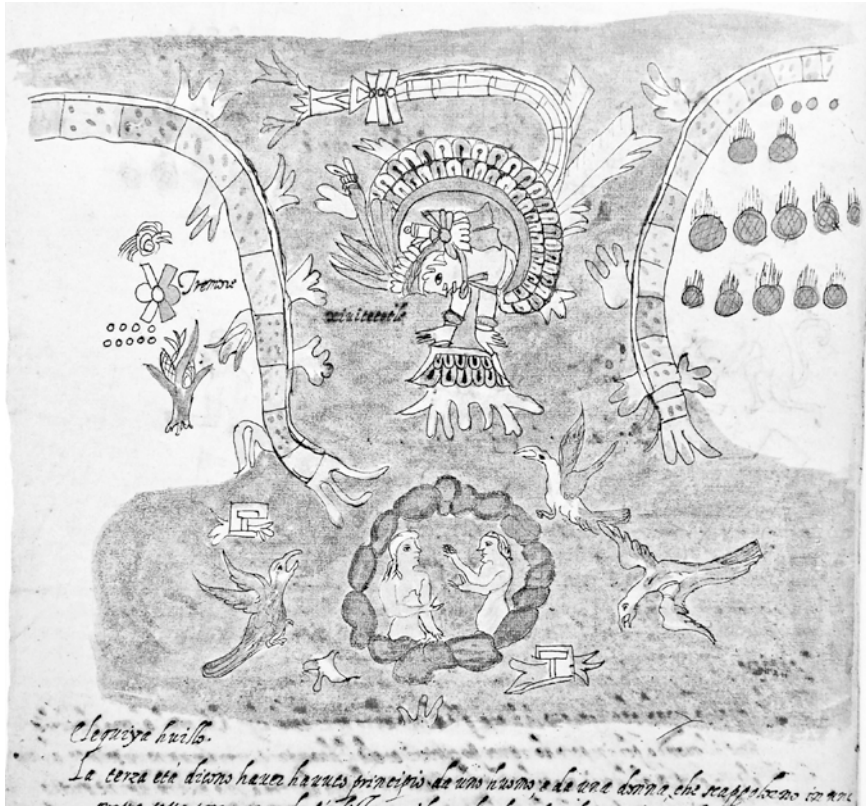 Tremore
Tlequiya huillo.
La terza età dicono hauer hauuto principio da uno huomo, e da una donna, che scappolorno in una